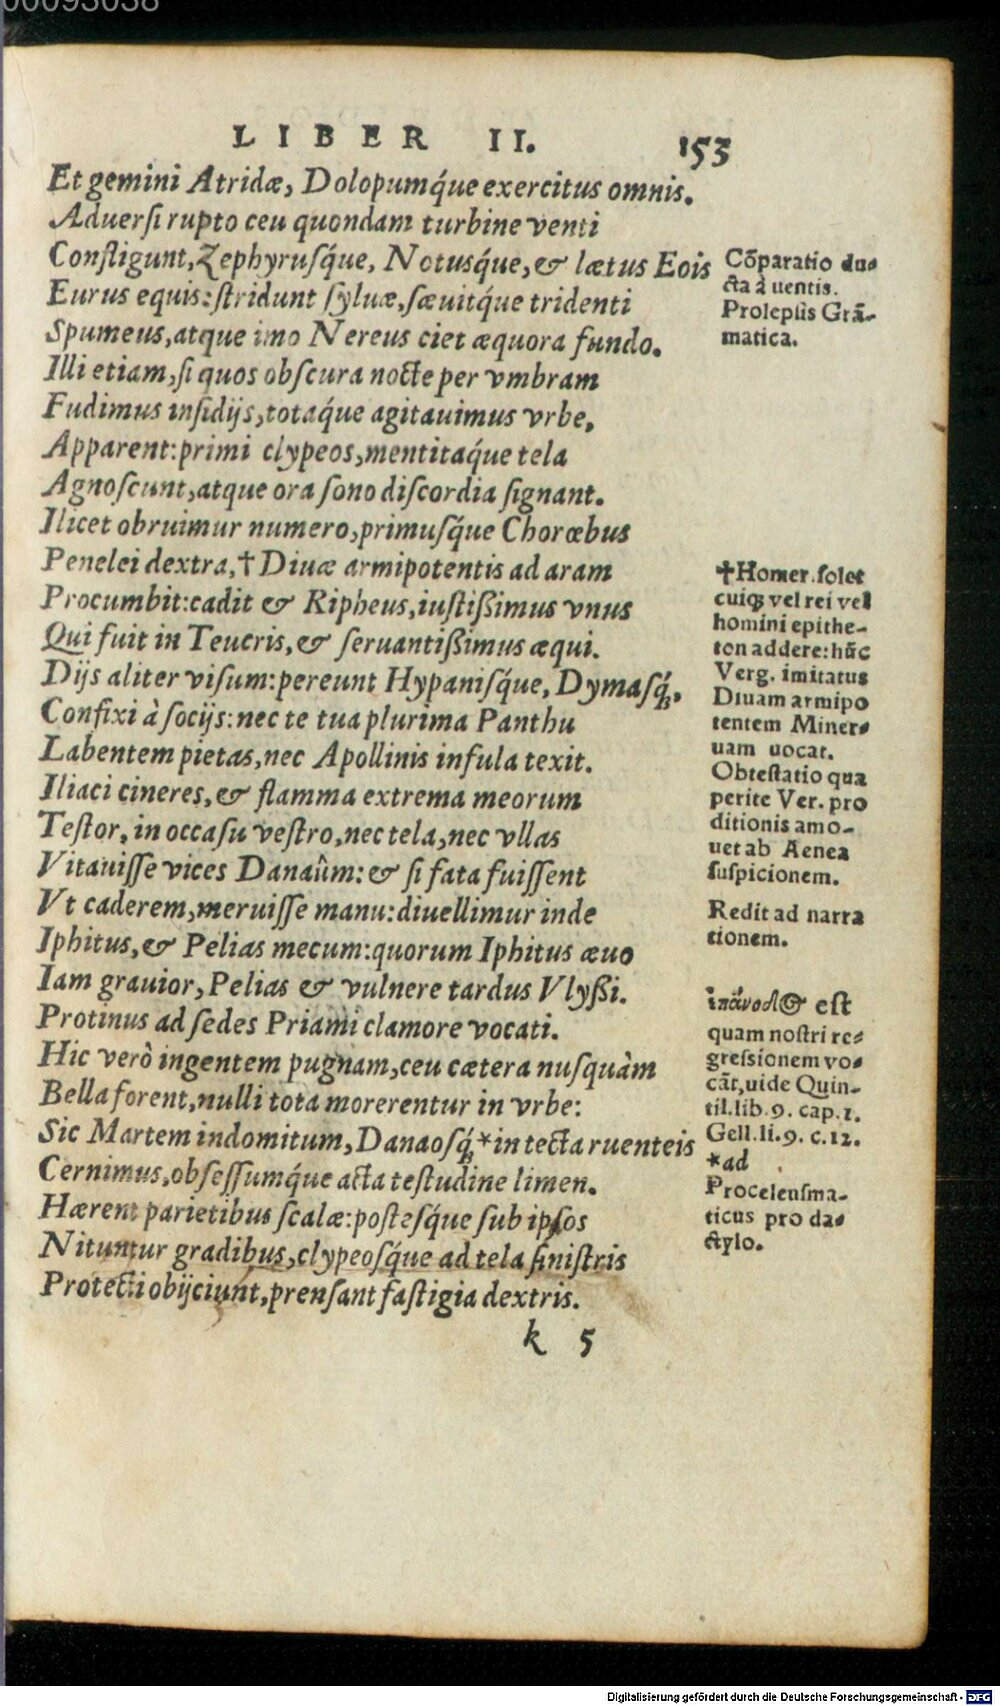 00093038
LIBER II. 153
Et gemini Atridæ, Dolopumq́ue exercitus omnis.
Aduersi rupto ceu quondam turbine venti
Confligunt, Zephyrusq́ue, Notusq́ue, & lætus Eois
Eurus equis: stridunt syluæ, sæuitq́ue tridenti
Spumeus, atque imo Nereus ciet æquora fundo.
Illi etiam, si quos obscura nocte per vmbram
Fudimus insidijs, totaq́ue agitauimus vrbe,
Apparent: primi clypeos, mentitaq́ue tela
Agnoscunt, atque ora sono discordia signant.
Ilicet obruimur numero, primusq́ue Chorœbus
Penelei dextra, † Diuæ armipotentis ad aram
Procumbit: cadit & Ripheus, iustißimus vnus
Qui fuit in Teucris, & seruantißimus æqui.
Dijs aliter visum: pereunt Hypanisq́ue, Dymasq́;,
Confixi à socijs: nec te tua plurima Panthu
Labentem pietas, nec Apollinis infula texit.
Iliaci cineres, & flamma extrema meorum
Testor, in occasu vestro, nec tela, nec vllas
Vitauisse vices Danaûm: & si fata fuissent
Vt caderem, meruisse manu: diuellimur inde
Iphitus, & Pelias mecum: quorum Iphitus æuo
Iam grauior, Pelias & vulnere tardus Vlyßi.
Protinus ad sedes Priami clamore vocati.
Hic verò ingentem pugnam, ceu cætera nusquàm
Bella forent, nulli tota morerentur in vrbe:
Sic Martem indomitum, Danaosq́; * in tecta ruenteis
Cernimus, obsessumq́ue acta testudine limen.
Hærent parietibus scalæ: postesq́ue sub ipsos
Nituntur gradibus, clypeosq́ue ad tela sinistris
Protecti obijciunt, prensant fastigia dextris.
k 5
Cõparatio du⸗
cta à uentis.
Prolepsis Grã-
matica.
†Homer. solet
cuiq; vel rei vel
homini epithe-
ton addere: hũc
Verg. imitatus
Diuam armipo
tentem Miner⸗
uam uocat.
Obtestatio qua
perite Ver. pro
ditionis amo-
uet ab Aenea
suspicionem.
Redit ad narra
tionem.
ἐπάνοδ⸺ est
quam nostri re⸗
gressionem vo⸗
cãt, uide Quin-
til. lib. 9. cap. 1.
Gell. li. 9. c. 12.
*ad
Proceleusma-
ticus pro da⸗
ctylo.
Digitalisierung gefördert durch die Deutsche Forschungsgemeinschaft - DFG